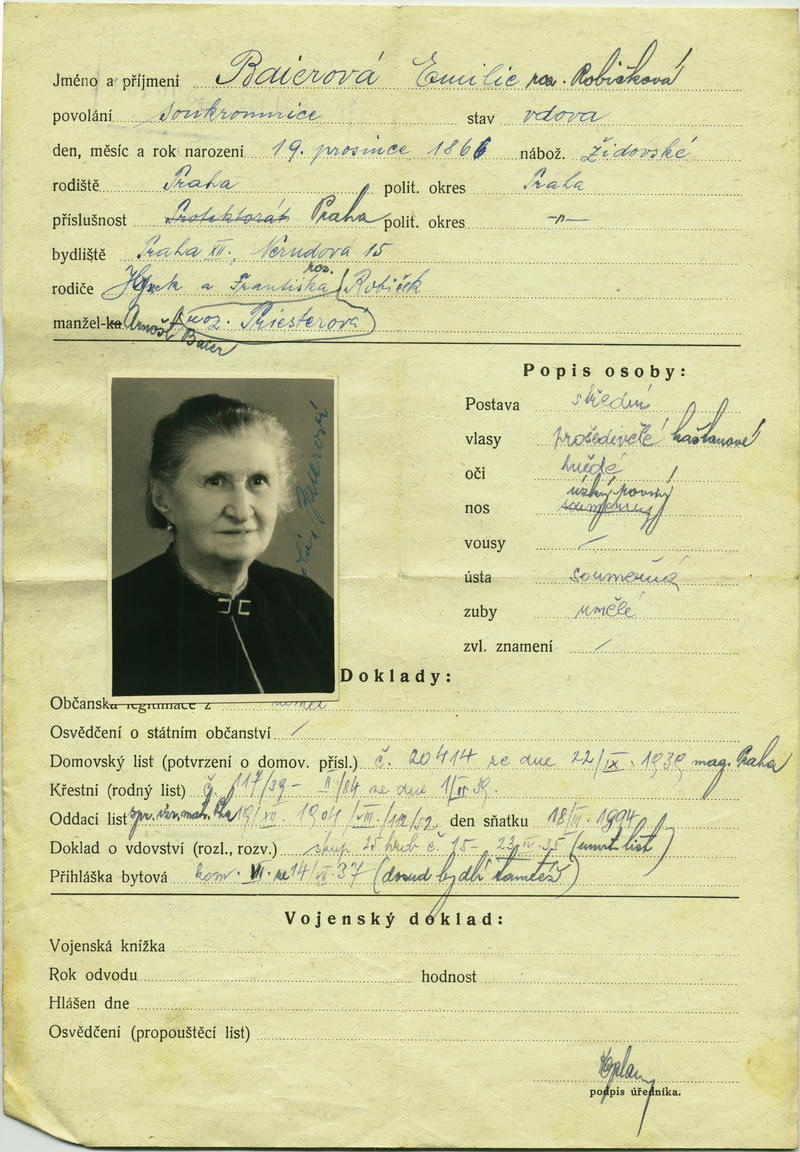 Jméno a příjmení Baierová Emilie roz. Robičková
povolání soukromnice stav vdova
den, měsíc a rok narození 19. prosince 1866 nábož. židovské
rodiště Praha polit. okres Praha
příslušnost Protektorát Praha polit. okres -"-
bydliště Praha XII., Nerudova 15
rodiče Hynek a Františka roz. Robiček
manžel-ka Arnošt Baier (roz. Priesterová)
Popis osoby:
Postava střední
vlasy prošedivělé kaštanové
oči hnědé
nos úzký, rovný souměrný
vousy /
ústa souměrná
zuby umělé
zvl. znamení /
Baierová
Doklady:
Občanská legitimace z
Osvědčení o státním občanství /
Domovský list (potvrzení o domov. přísl.) č. 20414 ze dne 22/IX. 1939 mag. Praha
Křestní (rodný list) č. 117/39 - II/84 ze dne 1/III 39.
Oddací list 19/XII. 1904 /VIII/112/52 den sňatku 18/III. 1894
Doklad o vdovství (rozl., rozv.) skup 25 hrob č. 15 - 23/IV. 35 (úmrt. list)
Přihláška bytová kom. VI. ze 14/VII. 37 (dosud bydlí tamtéž)
Vojenský doklad:
Vojenská knížka
Rok odvodu hodnost
Hlášen dne
Osvědčení (propouštěcí list)
podpis úředníka.